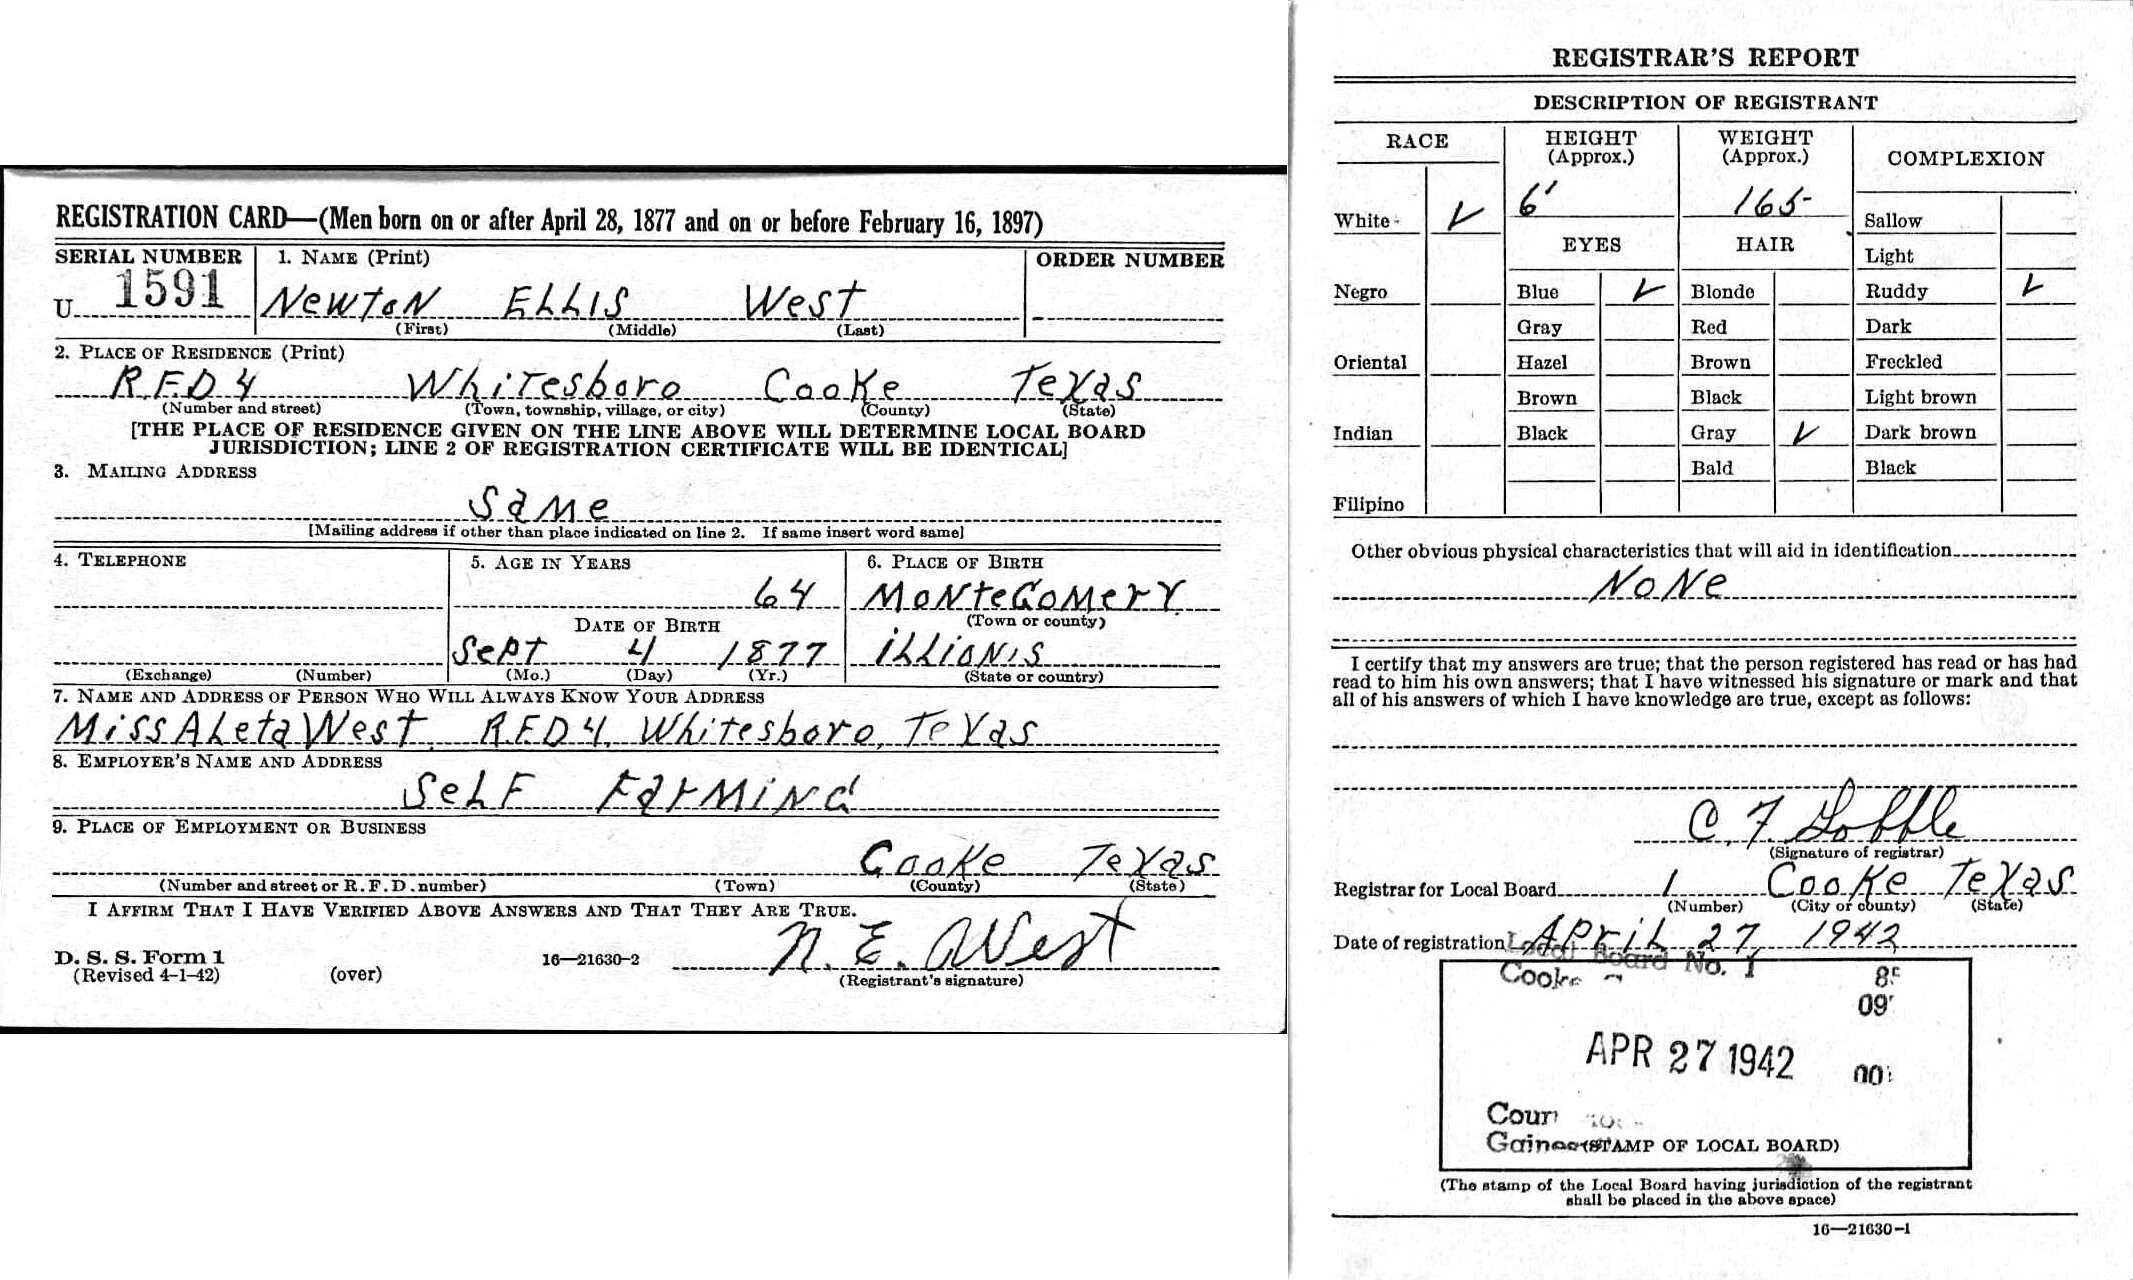 REGISTRATION CARD—(Men born on or after April 28, 1877 and on or before February 16, 1897)
SERIAL NUMBER 1. NAME (Print) ORDER NUMBER
U 1591 NEWTON ELLIS West
(First) (Middle) (Last)
2. PLACE OF RESIDENCE (Print)
R.F.D 4 Whitesboro Cooke Texas
(Number and street) (Town, township, village, or city) (County) (State)
[THE PLACE OF RESIDENCE GIVEN ON THE LINE ABOVE WILL DETERMINE LOCAL BOARD
JURISDICTION; LINE 2 OF REGISTRATION CERTIFICATE WILL BE IDENTICAL]
3. MAILING ADDRESS
Same
[Mailing address if other than place indicated on line 2. If same insert word same]
4. TELEPHONE 5. AGE IN YEARS 6. PLACE OF BIRTH
64 MONTeGOMerY
DATE OF BIRTH (Town or county)
Sept 4 1877 iLLiONiS
(Exchange) (Number) (Mo.) (Day) (Yr.) (State or country)
7. NAME AND ADDRESS OF PERSON WHO WILL ALWAYS KNOW YOUR ADDRESS
Miss ALeta West R.F.D 4. Whitesboro, Texas
8. EMPLOYER'S NAME AND ADDRESS
SeLF FarMiNG
9. PLACE OF EMPLOYMENT OR BUSINESS
Cooke Texas
(Number and street or R. F. D. number) (Town) (County) (State)
I AFFIRM THAT I HAVE VERIFIED ABOVE ANSWERS AND THAT THEY ARE TRUE.
D. S. S. Form 1
(Revised 4-1-42) (over) 16—21630-2 N. E. West
(Registrant's signature)
REGISTRAR'S REPORT
DESCRIPTION OF REGISTRANT
RACE HEIGHT (Approx.) WEIGHT (Approx.) COMPLEXION
White ✓ 6' 165- Sallow
EYES HAIR Light
Negro Blue ✓ Blonde Ruddy ✓
Gray Red Dark
Oriental Hazel Brown Freckled
Brown Black Light brown
Indian Black Gray ✓ Dark brown
Bald Black
Filipino
Other obvious physical characteristics that will aid in identification
NoNe
I certify that my answers are true; that the person registered has read or has had
read to him his own answers; that I have witnessed his signature or mark and that
all of his answers of which I have knowledge are true, except as follows:
C. F.
(Signature of registrar)
Registrar for Local Board 1 Cooke Texas
(Number) (City or county) (State)
Date of registration April 27, 1942
Local Board No. 1
Cooke
09
APR 27 1942
00
(STAMP OF LOCAL BOARD)
(The stamp of the Local Board having jurisdiction of the registrant
shall be placed in the above space)
16—21630-1